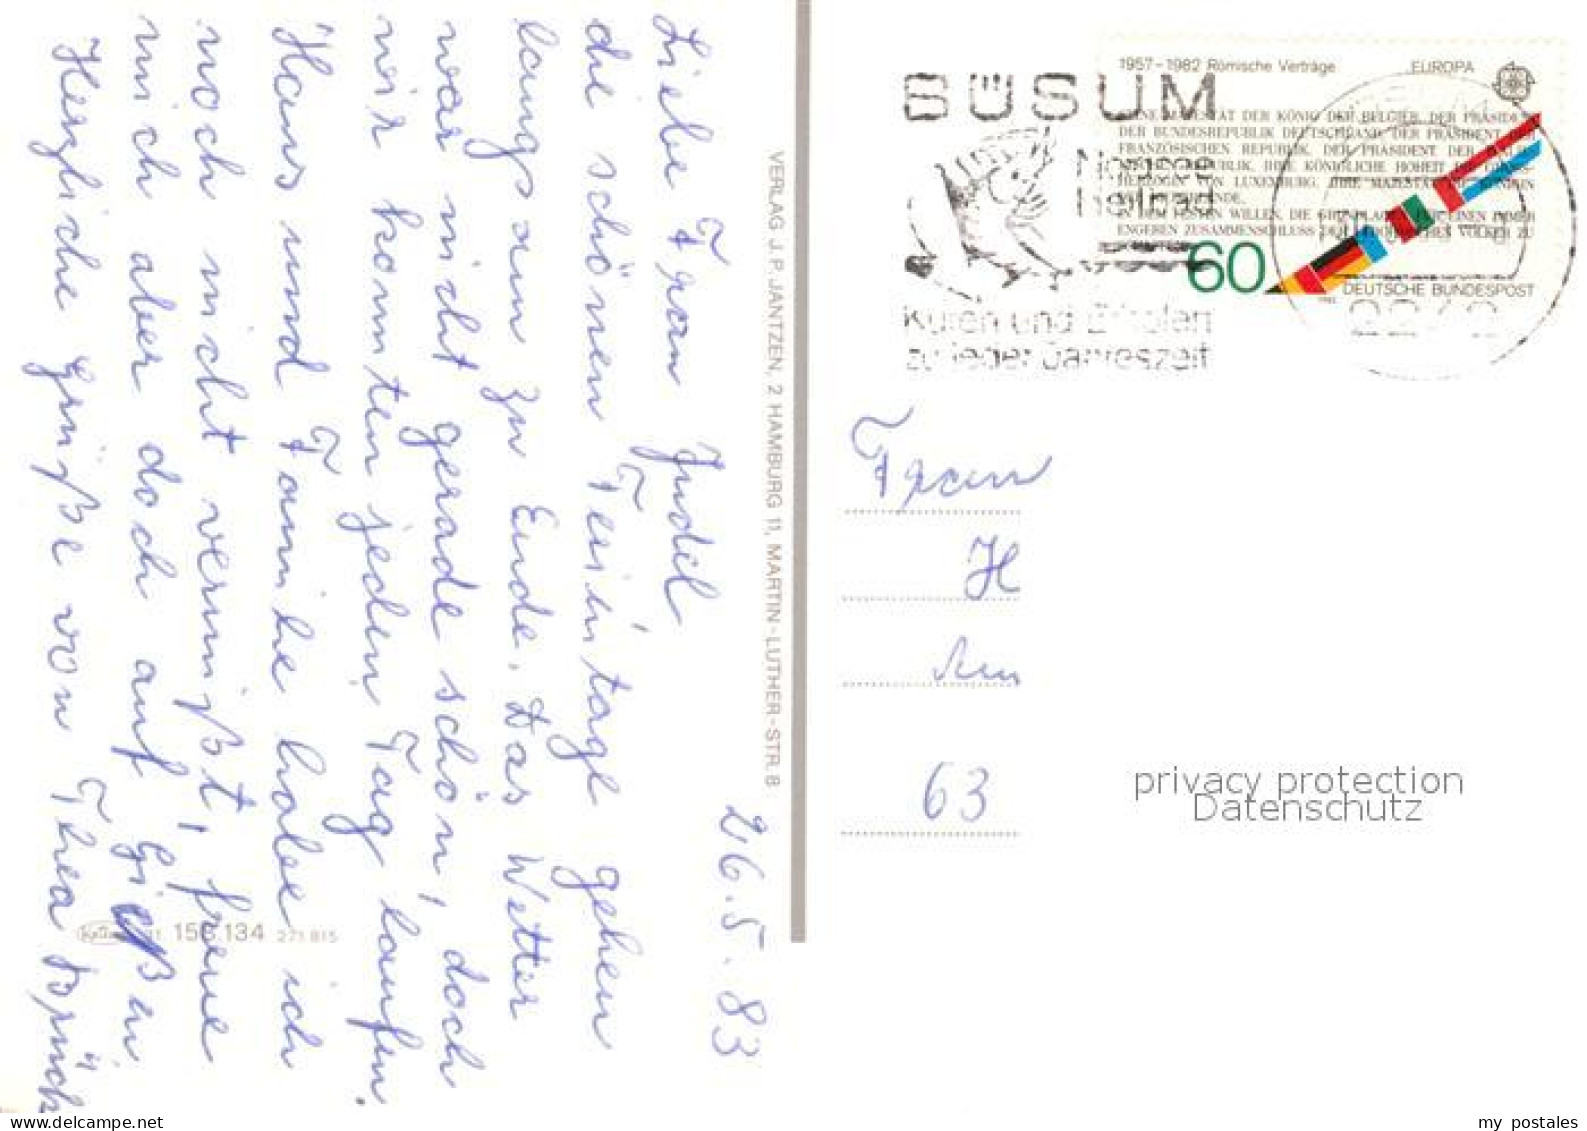 26.5.83
Liebe Frau Judel
die schönen Ferientage gehen
langsam zu Ende. Das Wetter
war nicht gerade schön, doch
wir konnten jeden Tag laufen.
Haus und Familie habe ich
noch nicht vermißt, freue
mich aber doch auf Gießen
Herzliche Grüße von Thea
VERLAG J. P. JANTZEN, 2 HAMBURG 11, MARTIN-LUTHER-STR. 8
134 271 815
BÜSUM
Nordsee
Heilbad
Kuren und Erholen
zu jeder Jahreszeit
1957-1982 Römische Verträge EUROPA
SEINE MAJESTÄT DER KÖNIG DER BELGIER, DER PRÄSIDENT
DER BUNDESREPUBLIK DEUTSCHLAND, DER PRÄSIDENT DER
FRANZÖSISCHEN REPUBLIK, DER PRÄSIDENT DER ITALIE-
NISCHEN REPUBLIK, IHRE KÖNIGLICHE HOHEIT DIE GROSS-
HERZOGIN VON LUXEMBURG, IHRE MAJESTÄT DIE KÖNIGIN
DER NIEDERLANDE,
IN DEM FESTEN WILLEN, DIE GRUNDLAGEN FÜR EINEN IMMER
ENGEREN ZUSAMMENSCHLUSS DER EUROPÄISCHEN VÖLKER ZU
60
DEUTSCHE BUNDESPOST
2242
Frau
H
63
privacy protection
Datenschutz
www.delcampe.net
my_postales